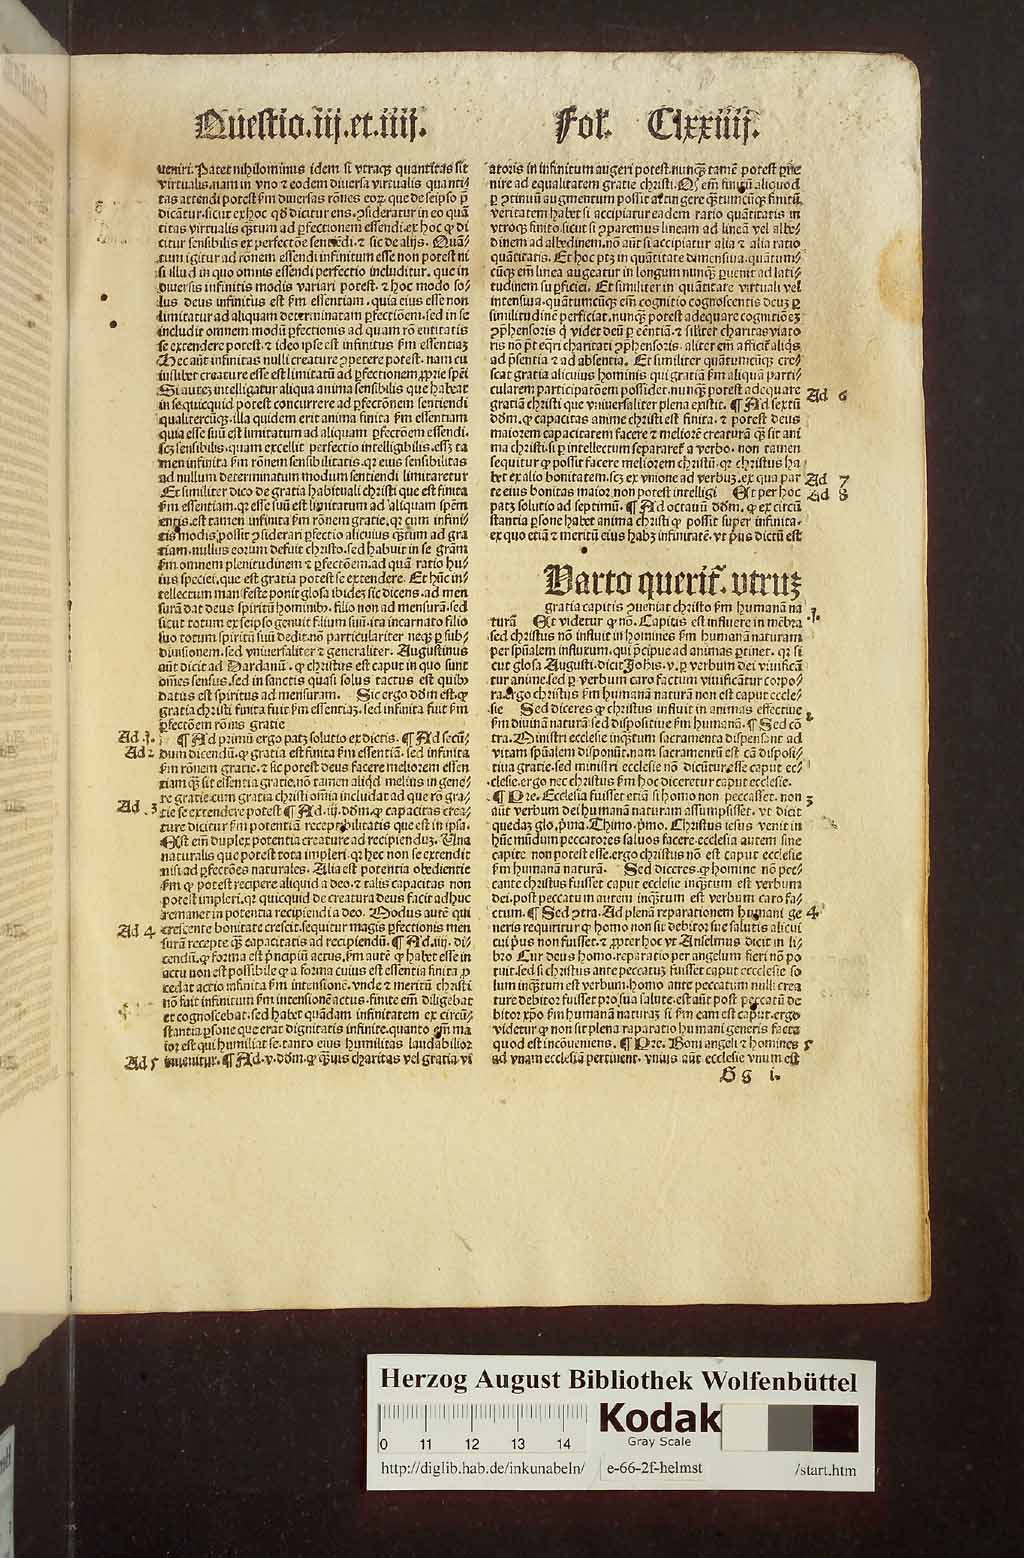 Questio.iij.et.iiij. Fol. Clxxiiij.
ueniri. Patet nihilominus idem si vtraqꝫ quantitas sit
virtualis. nam in vno ⁊ eodem diuersa virtualis quanti⸗
tas attendi potest ẜm diuersas rōnes eoꝝ que de seipso p̄
dicātur. sicut ex hoc qd̓ dicitur ens. ꝯsideratur in eo quā
titas virtualis qꝫtum ad ꝑfectionem essendi. ex hoc ꝙ di
citur sensibilis ex perfectōe sentiēdi. ⁊ sic de alijs. Quā⸗
tum igitur ad rōnem essendi infinitum esse non potest ni
si illud in quo omnis essendi perfectio includitur. que in
diuersis infinitis modis variari potest. ⁊ hoc modo so⸗
lus deus infinitus est ẜm essentiam. quia eius esse non
limitatur ad aliquam determinatam ꝑfectiōem. sed in se
includit omnem modū ꝑfectionis ad quam rō entitatis
se extendere potest. ⁊ ideo ipse est infinitus ẜm essentiaꝫ
Hec aūt infinitas nulli creature ꝯpetere potest. nam cu
iuslibet creature esse est limitatū ad ꝑfectionem ꝓprie spēi
Si auteꝫ intelligatur aliqua anima sensibilis que habeat
in se quicquid potest concurrere ad ꝑfectōnem sentiendi
qualitercūqꝫ. illa quidem erit anima finita ẜm essentiam
quia esse suū est limitatum ad aliquam ꝑfectōnem essendi.
scꝫ sensibilis. quam excellit perfectio intelligibilis. esset ta
men infinita ẜm rōnem sensibilitatis. qꝛ eius sensibilitas
ad nullum determinatum modum sentiendi limitaretur
Et similiter dico de gratia habituali christi que est finita
ẜm essentiam. qꝛ esse suū est limitatum ad aliquam spēm
entis. est tamen infinita ẜm rōnem gratie. qꝛ cum infini⸗
tis modis possit ꝯsiderari ꝑfectio alicuius qꝫtum ad gra
tiam. nullus eorum defuit christo. sed habuit in se grām
ẜm omnem plenitudinem ⁊ ꝑfectōem. ad quā ratio hu⸗
ius speciei. que est gratia potest se extendere. Et hūc in⸗
tellectum manifeste ponit glosa ibideꝫ sic dicens. ad men
surā dat deus spiritū hominibꝰ. filio non ad mensurā. sed
sicut totum ex seipso genuit filium suū. ita incarnato filio
suo totum spiritū suū dedit. nō particulariter neqꝫ ꝑ sub⸗
diuisionem. sed vniuersaliter ⁊ generaliter. Augustinus
aūt dicit ad Dardanū. ꝙ christus est caput in quo sunt
om̄es sensus. sed in sanctis quasi solus tactus est quibꝰ
datus est spiritus ad mensuram. Sic ergo dōm est. ꝙ
gratia christi finita fuit ẜm essentiaꝫ. sed infinita fuit ẜm
ꝑfectōem rōnis gratie
Ad .1. ¶ Ad primū ergo patꝫ solutio ex dictis. ¶ Ad secū⸗
Ad 2 dum dicendū. ꝙ gratia est finita ẜm essentiā. sed infinita
ẜm rōnem gratie. ⁊ sic potest deus facere meliorem essen
tiam qꝫ sit essentia gratie. nō tamen aliqd melius in gene⸗
re gratie. cum gratia christi oīa includat ad que rō gra⸗
Ad .3 tie se extendere potest ¶ Ad .iij. dōm. ꝙ capacitas crea⸗
ture dicitur ẜm potentiā receptibilitatis que est in ipsa.
Est em̄ duplex potentia creature ad recipienduꝫ. Una
naturalis que potest tota impleri. qꝛ hec non se extendit
nisi ad ꝑfectōes naturales. Alia est potentia obedientie
ẜm ꝙ potest recipere aliquid a deo. ⁊ talis capacitas non
potest impleri. qꝛ quicquid de creatura deus facit adhuc
remanet in potentia recipiendi a deo. Modus autē qui
Ad 4 crescente bonitate crescit. sequitur magis ꝑfectionis men
surā recepte qꝫ capacitatis ad recipiendū. ¶ Ad .iiij. di⸗
cendū. ꝙ forma est pͥncipiū actus. ẜm autē ꝙ habet esse in
actu non est possibile ꝙ a forma cuius est essentia finita ꝓ
cedat actio infinita ẜm intensionē. vnde ⁊ meritū christi
nō fuit infinitum ẜm intensionē actus. finite em̄ diligebat
et cognoscebat. sed habet quādam infinitatem ex circū⸗
stantia ꝑsone que erat dignitatis infinite. quanto em̄ ma
ior est qui humiliat se. tanto eius humilitas laudabilior
Ad 5 inuenitur. ¶ Ad .v. dōm. ꝙ qꝫuis charitas vel gratia vi
atoris in infinitum augeri potest. nunqꝫ tamē potest ꝑue
nire ad equalitatem gratie christi. Qd̓ em̄ finitū aliquod
ꝑ ꝯtinuū augmentum possit attingere qꝫtumcūqꝫ finitū
veritatem habet si accipiatur eadem ratio quātitatis in
vtroqꝫ finito. sicut si ꝯparemus lineam ad lineā vel albe⸗
dinem ad albedinem. nō aūt si accipiatur alia ⁊ alia ratio
quātitatis. Et hoc ptꝫ in quātitate dimensiua. quātum⸗
cūqꝫ em̄ linea augeatur in longum nunqꝫ ꝑuenit ad lati⸗
tudinem suꝑficiei. Et similiter in quātitate virtuali vel
intensiua. quātumcūqꝫ em̄ cognitio cognoscentis deuꝫ ꝑ
similitudinē perficiat. nunqꝫ potest adequare cognitiōeꝫ
ꝯp̄hensoris q̇ videt deū ꝑ eēntiā. ⁊ sil̓iter charitas viato
ris nō pōt eq̄ri charitati ꝯp̄hensoris. aliter em̄ afficit̄ aliqs
ad p̄sentia ⁊ ad absentia. Et similiter quātumcūqꝫ cre⸗
scat gratia alicuius hominis qui gratiā ẜm aliquā parti⸗
cularem participatōem possidet. nunqꝫ potest adequare
gratiā christi que vniuersaliter plena existit. ¶ Ad sextū Ad 6
dōm. ꝙ capacitas anime christi est finita. ⁊ potest deus
maiorem capacitatem facere ⁊ meliorē creaturā qꝫ sit ani
ma christi. si ꝑ intellectum separaret̄ a verbo. non tamen
sequitur ꝙ possit facere meliorem christū. qꝛ christus ha
bet ex alio bonitatem. scꝫ ex vnione ad verbuꝫ. ex qua par Ad 7
te eius bonitas maior non potest intelligi Et per hoc Ad 8
patꝫ solutio ad septimū. ¶ Ad octauū dōm. ꝙ ex circū
stantia ꝑsone habet anima christi ꝙ possit super infinita.
ex quo etiā ⁊ meritū eius habꝫ infinitatē. vt pͥus dictū est
Uarto querit̄. vtruꝫ
gratia capitis ꝯueniat christo ẜm humanā na
turā Et videtur ꝙ nō. Capitis est influere in mēbra .1.
sed christus nō influit in homines ẜm humanā naturam
per spūalem influxum. qui p̄cipue ad animas ꝑtinet. qꝛ si
cut glosa Augusti. dicit Johis. v. ꝑ verbum dei viuificā
tur anime. sed ꝑ verbum caro factum viuificātur corpo⸗
ra. Ergo christus ẜm humanā naturā non est caput eccle⸗
sie Sed diceres ꝙ christus influit in animas effectiue 2
ẜm diuinā naturā. sed dispositiue ẜm humanā. ¶ Sed cō
tra. Ministri ecclesie inqꝫtum sacramenta dispensant ad
vitam spūalem disponūt. nam sacramentū est cā disposi⸗
tiua gratie. sed ministri ecclesie nō dicūtur esse caput ec⸗
clesie. ergo nec christus ẜm hoc diceretur caput ecclesie.
¶ Pre. Ecclesia fuisset etiā si homo non peccasset. non 3
aūt verbum dei humanā naturam assumpsisset. vt dicit
quedaꝫ glo. pͥma. Thimo. pͥmo. Christus iesus venit in
hūc mūdum peccatores saluos facere. ecclesia autem sine
capite non potest esse. ergo christus nō est caput ecclesie
ẜm humanā naturā. Sed diceres. ꝙ homine nō pec⸗
cante christus fuisset caput ecclesie inqꝫtum est verbum
dei. post peccatum autem inqꝫtum est verbum caro fa⸗
ctum. ¶ Sed ꝯtra. Ad plenā reparationem humani ge 4
neris requiritur ꝙ homo non sit debitor sue salutis alicui
cui pͥus non fuisset. ⁊ ꝓpter hoc vt Anselmus dicit in li⸗
bro Cur deus homo. reparatio per angelum fieri nō po
tuit. sed si christus ante peccatuꝫ fuisset caput eccclesie so
lum inqꝫtum est verbum. homo ante peccatum nulli crea
ture debitor fuisset pro sua salute. est aūt post peccatū de
bitor xp̄o ẜm humanā naturaꝫ si ẜm eam est caput. ergo
videtur ꝙ non sit plena raparatio humani generis facta
quod est incōueniens. ¶ Pre. Boni angeli ⁊ homines 5
ad vnam ecclesiā pertinent. vnius aūt ecclesie vnum est
Gg i.
Herzog August Bibliothek Wolfenbüttel
Kodak
Gray Scale
0 11 12 13 14
http://diglib.hab.de/inkunabeln/ e-66-2f-helmst /start.htm